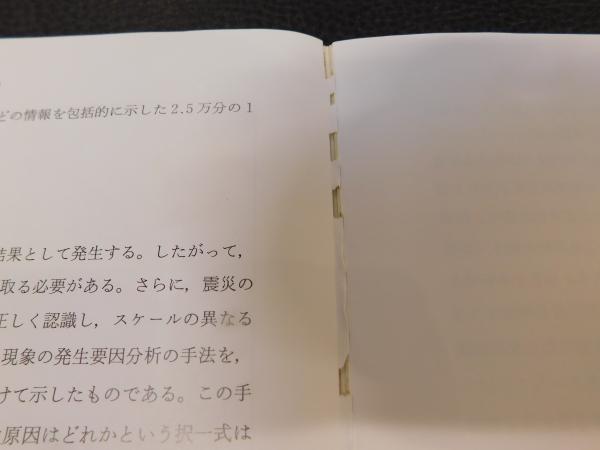 どの情報を包括的に示した2.5万分の1
結果として発生する。したがって，
取る必要がある。さらに，震災の
正しく認識し，スケールの異なる
現象の発生要因分析の手法を，
けて示したものである。この手
原因はどれかという択一式は